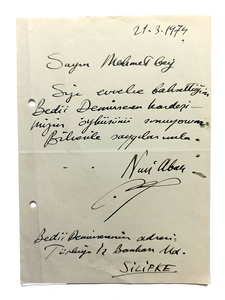 21-3-1974
Sayın Mehmet Bey
Size evvelce bahsettiğim
Bedii Demirseren kardeşi-
mizin öyküsünü sunuyorum
Bilvesile saygılarımla.
Nuri Aban
Bedii Demirserenin adresi
Türkiye İş Bankası Md.
SİLİFKE